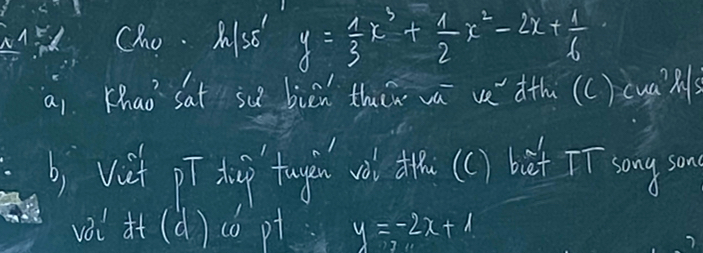 Cho. h/số y = 1/3 x³ + 1/2 x² - 2x + 1/6
a, Khảo sát sự biến thiên và vẽ đthị (C) của h/s
b, Viết pT tiếp tuyến với đthị (C) biết TT song song
với đt (d) có pt: y = -2x + 1